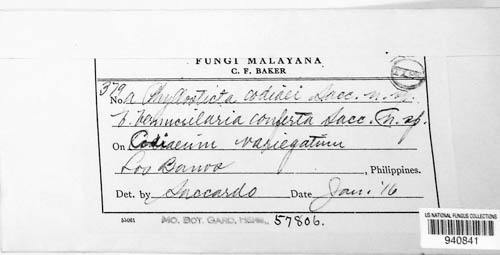 FUNGI MALAYANA
C. F. BAKER
379
No. a Phyllosticta codiaei Sacc. n. sp.
b. Vermicularia conferta Sacc. n. sp.
On Codiaeum variegatum
Los Banos, Philippines.
Det. by Saccardo Date Jan. '16
MO. BOT. GARD. HERB. 57806.
US NATIONAL FUNGUS COLLECTIONS
940841